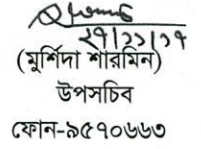 ২৭/১১/১৭
(মুর্শিদা শারমিন)
উপসচিব
ফোন-৯৫৭০৬৬৩